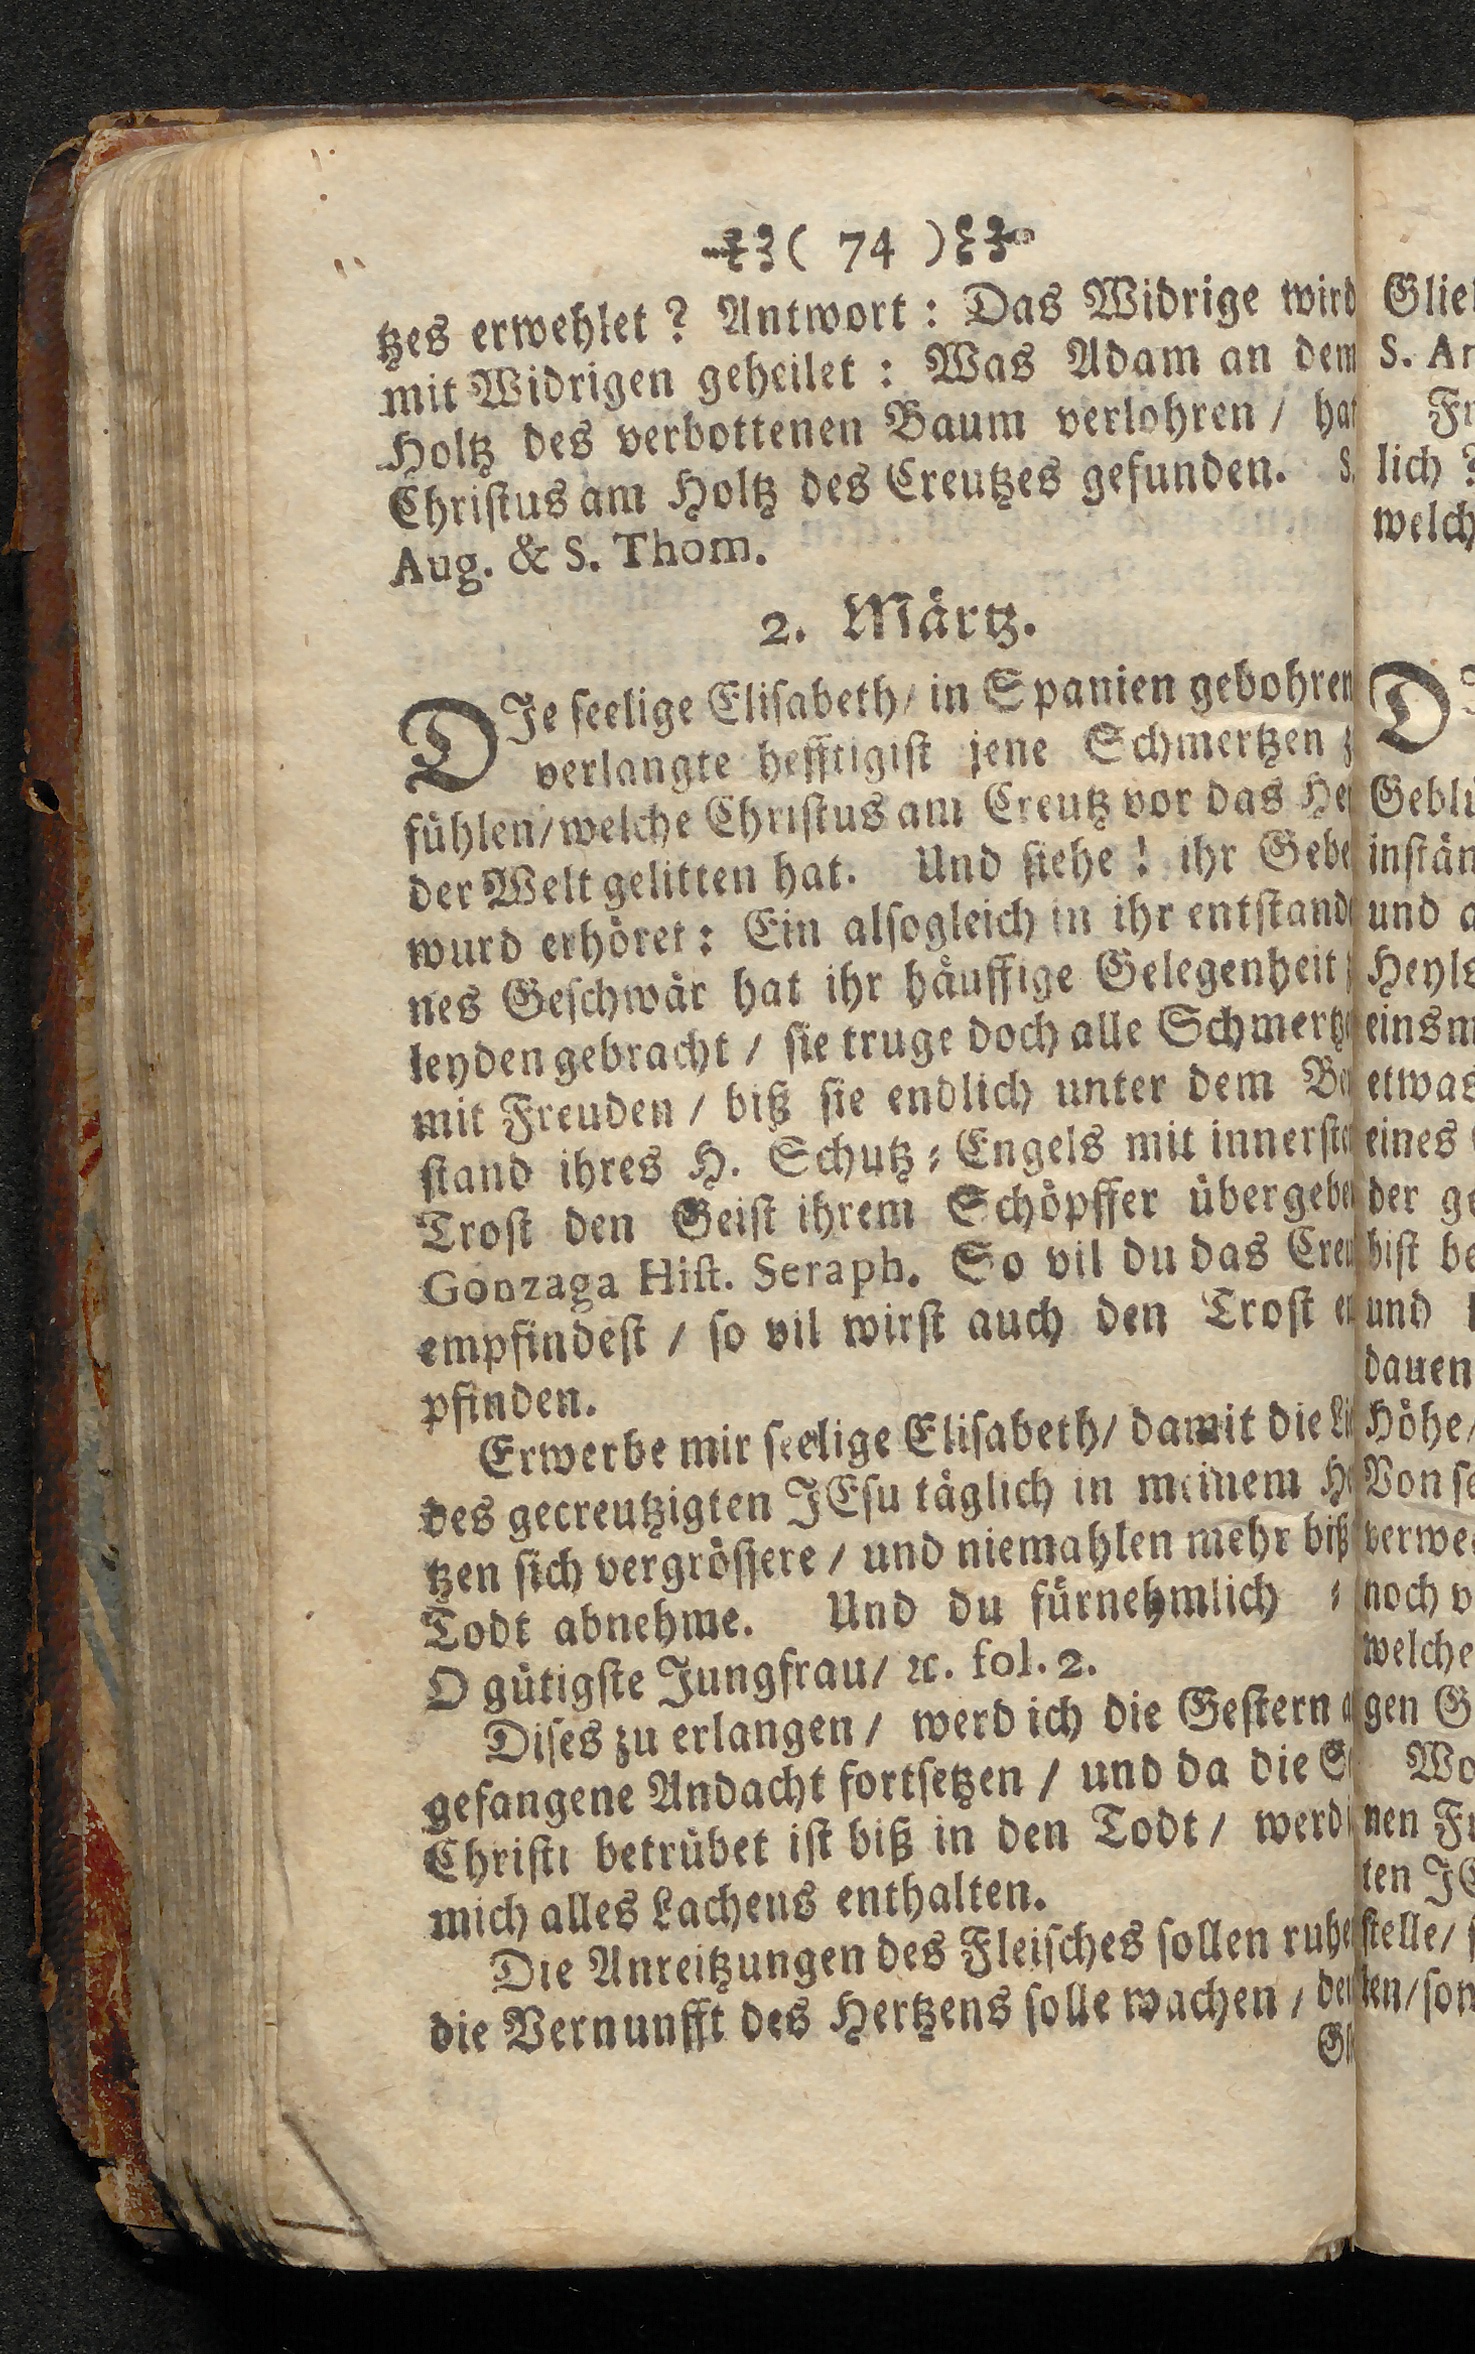 ( 74 )
tzes erwehlet ? Antwort : Das Widrige wird
mit Widrigen geheilet : Was Adam an dem
Holtz des verbottenen Baum verlohren / hat
Chriſtus am Holtz des Creutzes gefunden. S.
Aug. & S. Thom.
2. Märtz.
DJe ſeelige Eliſabeth / in Spanien gebohren
verlangte hefftigiſt jene Schmertzen z
fühlen / welche Chriſtus am Creutz vor das He
der Welt gelitten hat. Und ſiehe ! ihr Gebe
wurd erhöret : Ein alſogleich in ihr entſtande
nes Geſchwär hat ihr häuffige Gelegenheit
leyden gebracht / ſie truge doch alle Schmertze
mit Freuden / biß ſie endlich unter dem Be
ſtand ihres H. Schutz-Engels mit innerſte
Troſt den Geiſt ihrem Schöpffer übergebe
Gonzaga Hiſt. Seraph. So vil du das Creu
empfindeſt / ſo vil wirſt auch den Troſt e
pfinden.
Erwerbe mir ſeelige Eliſabeth / damit die Li
des gecreutzigten JEſu täglich in meinem He
tzen ſich vergröſſere / und niemahlen mehr biß
Todt abnehme. Und du fürnehmlich -
O gütigſte Jungfrau / ꝛc. fol. 2.
Diſes zu erlangen / werd ich die Geſtern a
gefangene Andacht fortſetzen / und da die S
Chriſti betrübet iſt biß in den Todt / werd i
mich alles Lachens enthalten.
Die Anreitzungen des Fleiſches ſollen ruhe
die Vernunfft des Hertzens ſolle wachen / de
Gl
Glie
S. A
Fr
lich ?
welch
D
Geblü
inſtän
und a
Heyls
einsm
etwas
eines
der ge
biſt be
und
dauen
Höhe /
Von ſe
verwe
noch v
welche
gen G
Wo
nen Fr
ten JE
ſtelle /
ten / ſon